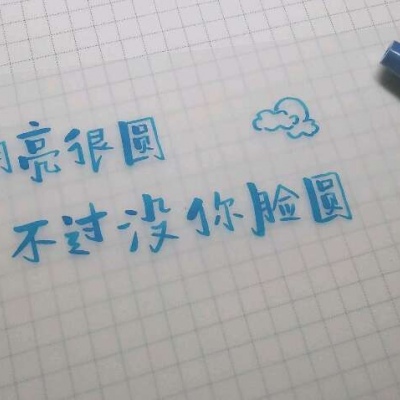 月亮很圆
不过没你脸圆